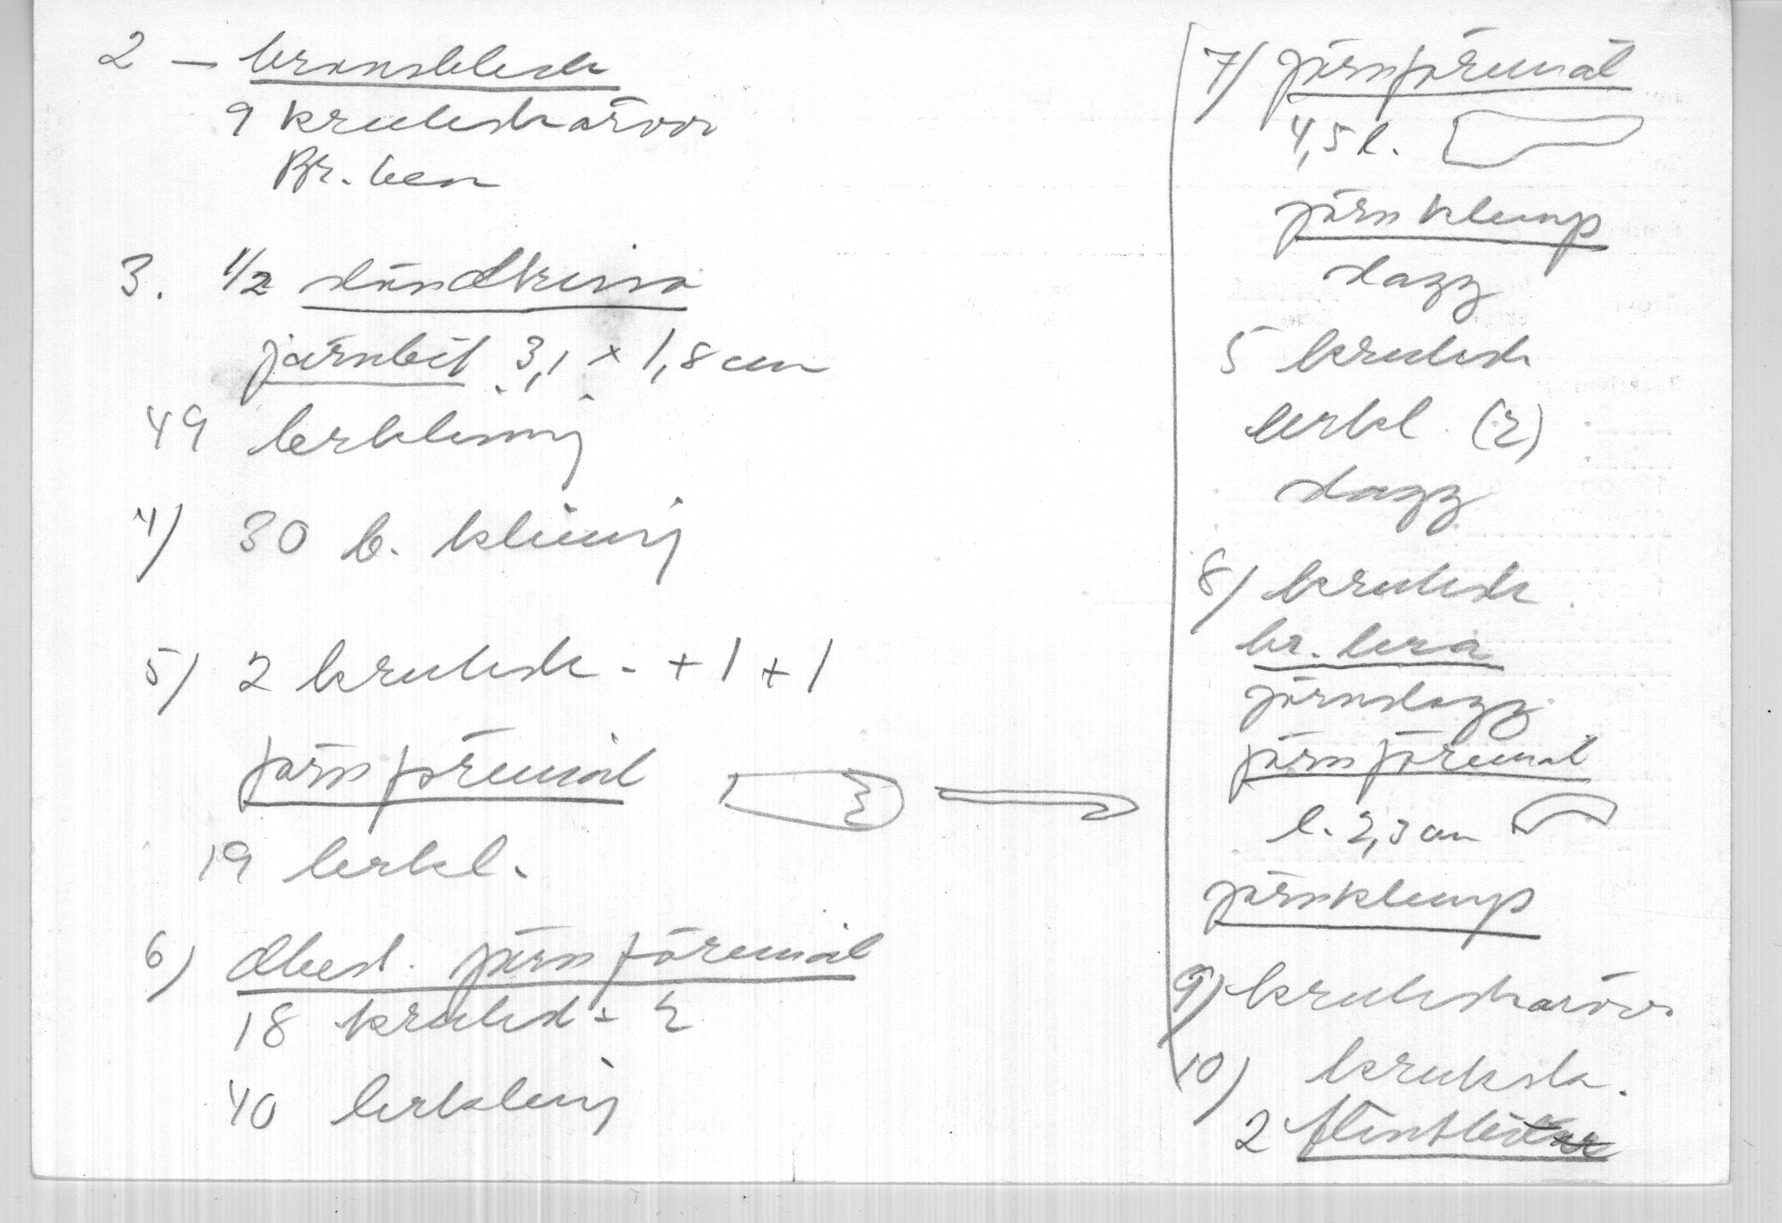 2 – bronsbleck
9 krukskärvor
Br. ben
3. 1/2 sländtrissa
järnbit 3,1 x 1,8 cm
49 lerklining
4) 30 l. klining
5) 2 kruksk - +1 +1
järnföremål
19 lerkl.
6) obest. järnföremål
18 kruksk -
40 lerklining
7) järnföremål
4,5 l.
järnklump
slagg
5 kruksk
lerkl. (2)
slagg
8) kruksk
br. lera
järnslagg
järnföremål
l. 2,3 cm
järnklump
9) krukskärvor
10) kruksk.
2 flintbitar